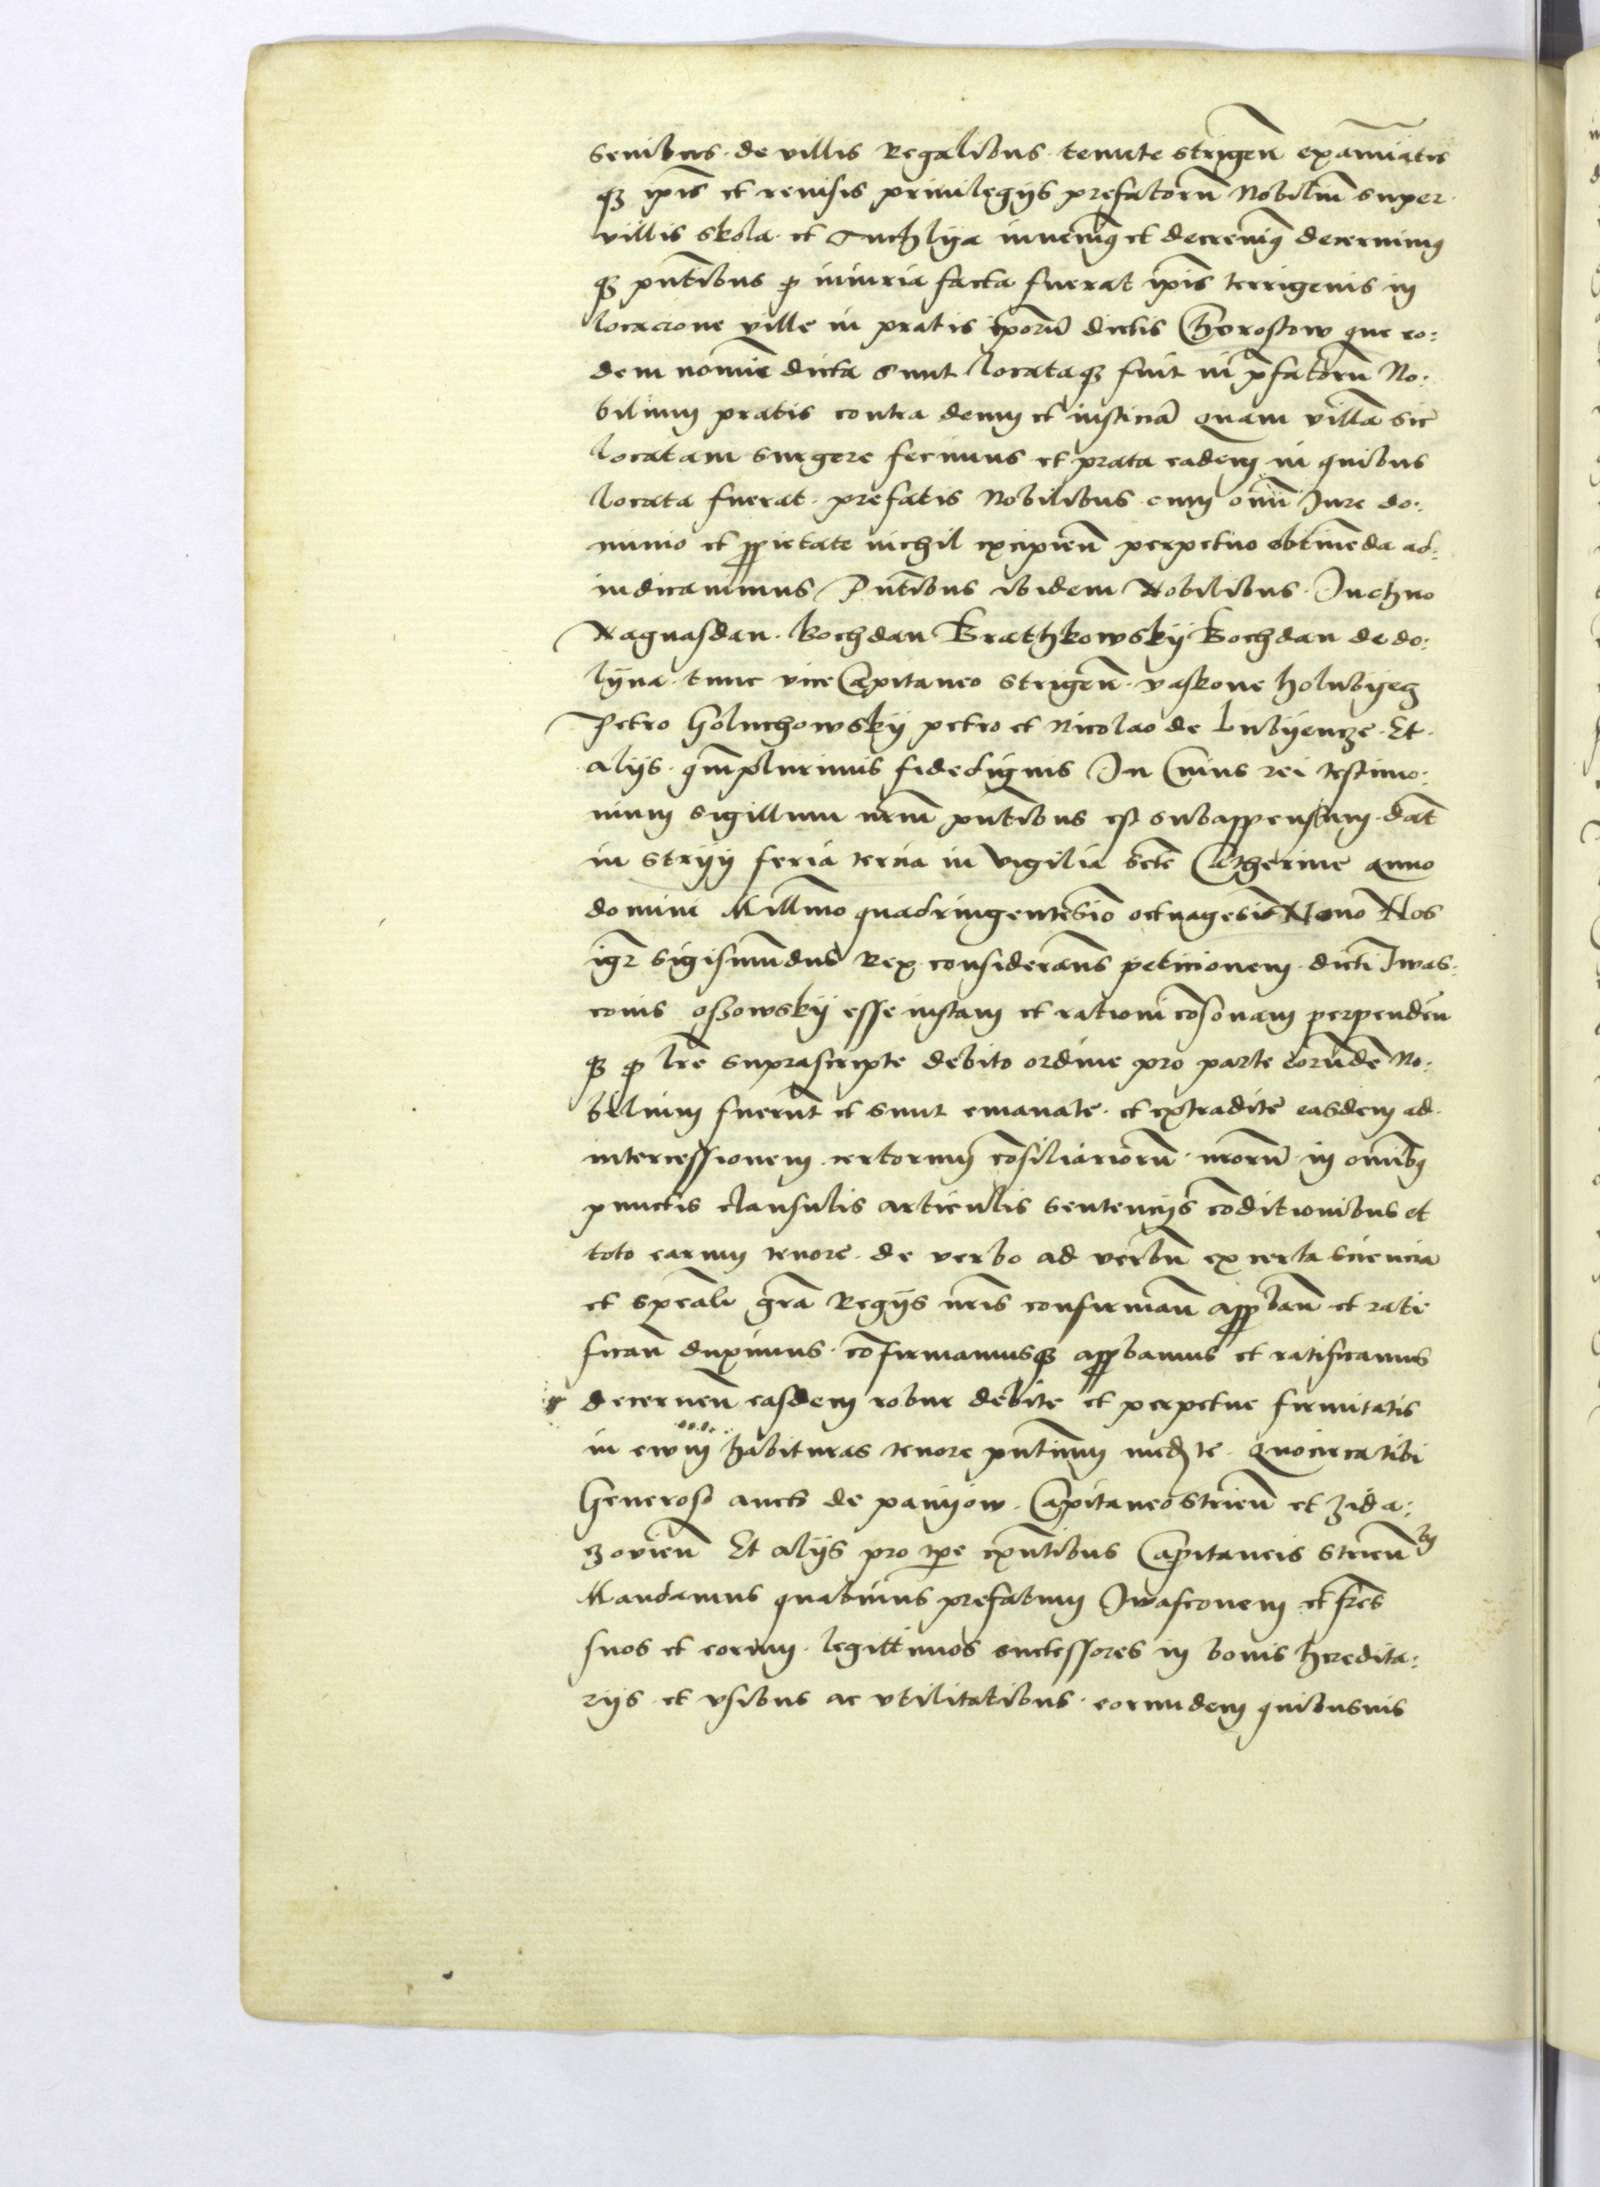 senibus de villis Regalibus tenute strigeñ examiatis
qȝ ip̄is et reuisis priuilegijs prefatoru̅ Nobiliu̅ super
villis skola et Tuchlya inuenimꝰ et decreuimꝰ decernimꝰ
qȝ pn̄tibus ꝙ iniuria facta fuerat ip̄is terrigenis in
locacione ville in pratis ip̄orū dictis Cherostow que eo:
dem nomie̅ dicta sunt locataqȝ fuit in p̄fatoru̅ No:
bilium pratis contra deum et iusticia̅ Quam villa̅ sic
locatam surgere fecimus et prata eadem in quibus
locata fuerat prefatis Nobilibus cum om̄i Jure do:
minio et ꝓprietate nichil excipien̄ perpetuo obtine̅da ad:
iudicauimus Pn̄tibus ibidem Nobilibus Juchno
Nagnasdan Bochdan Brathkowskij Bochdan de do:
lyna tunc vice Capitaneo strigen̄ vaskone holubyecz
Petro Goluchowskij petro et Nicolao de Lubyencze Et
alijs qm̄plurimis fidedignis In Cuius rei testimo:
nium sigillum nr̄m pn̄tibus est subappensum dat̄
in stryy feria tercia in vigilia sc̄te Catherine Anno
domini Millm̄o quadringentesio̅ octuagesio̅ Nono Nos
igr̄ Sigismu̅dus Rex considerans peticionem dicti Jwas:
conis Ossowskij esse iustam et rationi co̅sonam perpenden̄
qȝ ꝙ lr̄e suprascripte debito ordine pro parte eorunde̅ No:
bilium fueru̅t et sunt emanate et extradite easdem ad
intercessionem certorum co̅siliarioru̅ nr̄oru̅ in om̄ibꝰ
punctis clausulis articulis sentencijs co̅ditionibus et
toto earum tenore de verbo ad verbu̅ ex certa sciencia
et spe̅ali gr̄a Regijs nr̄is confirman̄ apꝓban̄ et rati
fican̄ duximus co̅firmamusqȝ apꝓbamus et ratificamus
decernen̄ easdem robur debite et perpetue firmitatis
in ewm habituras tenore pn̄tium med̄te Quocirca tibi
Generoso de panyow Capitaneo strien̄ et zida:
zovien̄ Et alijs pro tp̄e exn̄tibus Capitaneis strien̄bꝰ
Mandamus quatinus prefatum Jwasconem et fr̄es
suos et eorum legittimos successores in bonis heredita:
rijs et vsibus ac vtilitatibus eorundem quibusuis